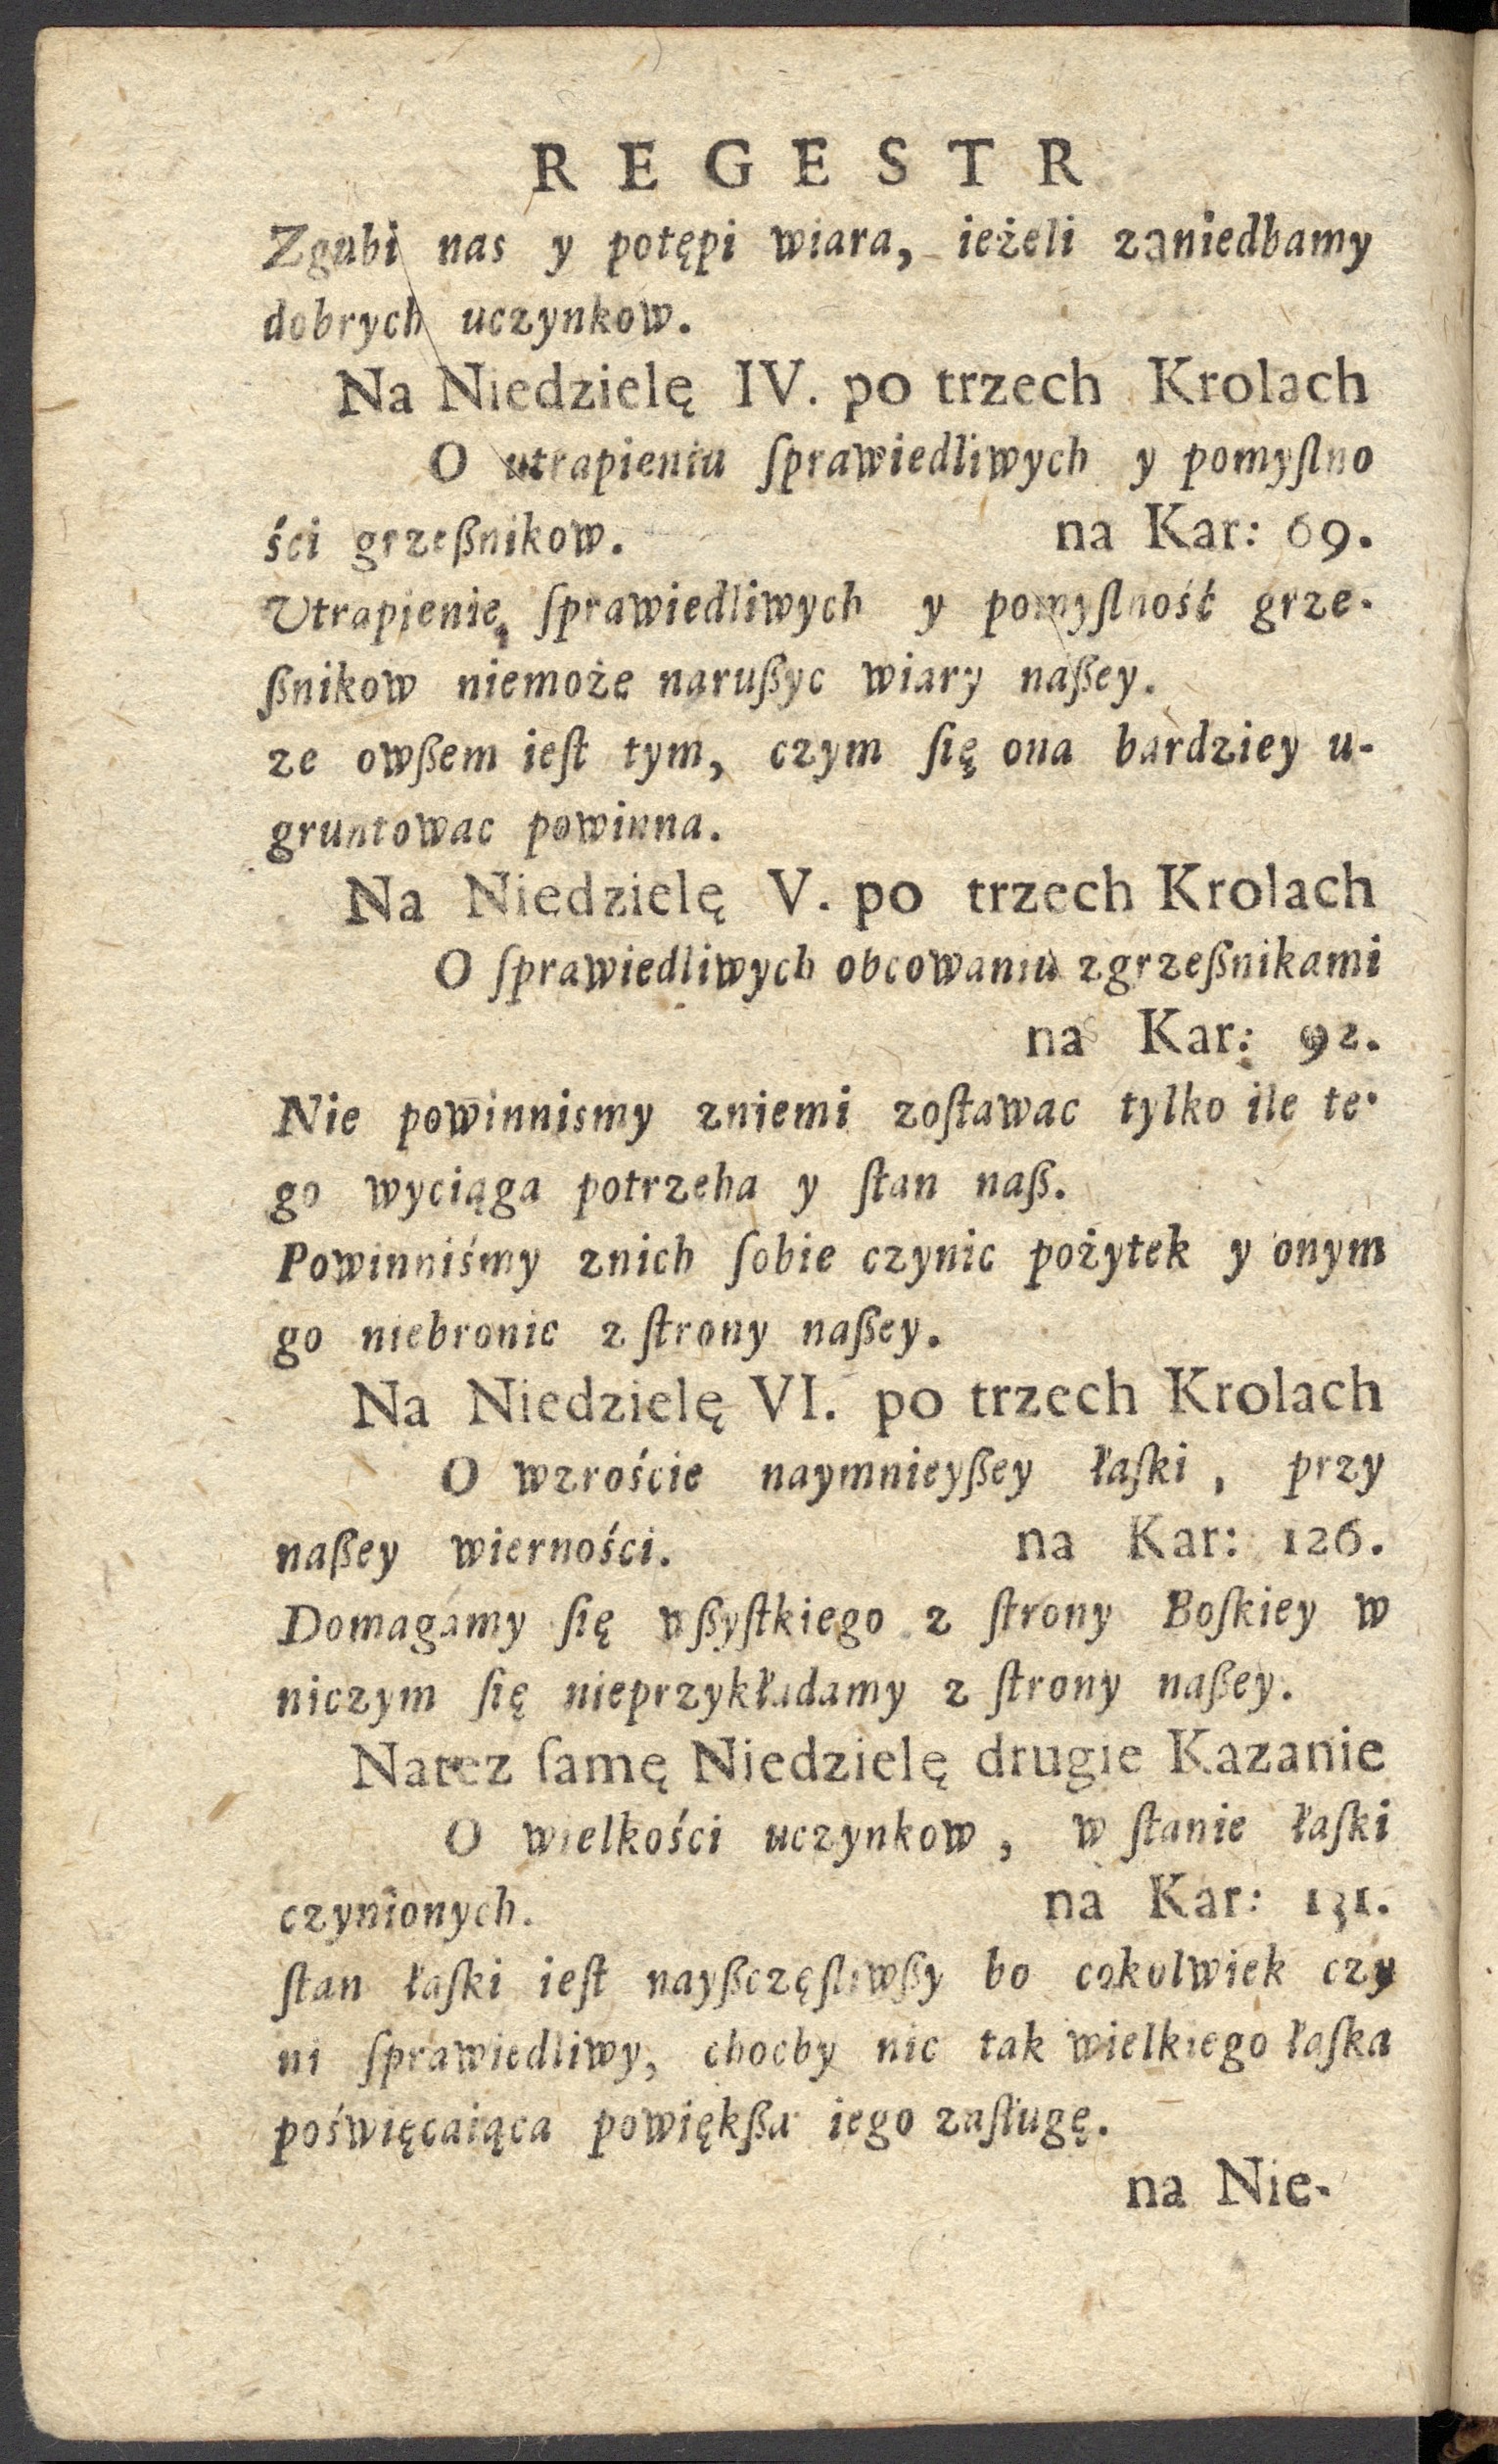 REGESTR
Zgubi nas y potępi wiara, ieżeli zaniedbamy
dobrych uczynkow.
Na Niedzielę IV. po trzech Krolach
O utrapieniu ſprawiedliwych y pomyſlno
ści grzeßnikow. na Kar: 69.
Vtrapienie, ſprawiedliwych y pomyſlność grze-
ßnikow niemoże narußyc wiary naßey.
ze owßem ieſt tym, czym ſię ona bardziey u-
gruntowac powinna.
Na Niedzielę V. po trzech Krolach
O ſprawiedliwych obcowaniu zgrzeßnikami
na Kar: 92.
Nie powinnismy zniemi zoſtawac tylko ile te-
go wyciąga potrzeha y ſtan naß.
Powinniśmy znich ſobie czynic pożytek y onym
go niebronic z ſtrony naßey.
Na Niedzielę VI. po trzech Krolach
O wzroście naymnieyßey łaſki, przy
naßey wierności. na Kar: 126.
Domagamy ſię wßyſtkiego z ſtrony Boſkiey w
niczym ſię nieprzykładamy z ſtrony naßey.
Natez ſamę Niedzielę drugie Kazanie
O wielkości uczynkow, w ſtanie łaſki
czynionych. na Kar: 131.
ſtan łaſki ieſt nayßczęſliwßy bo cokolwiek czy
ni ſprawiedliwy, chocby nic tak wielkiego łaſka
poświęcaiąca powiękßa iego zaſługę.
na Nie-